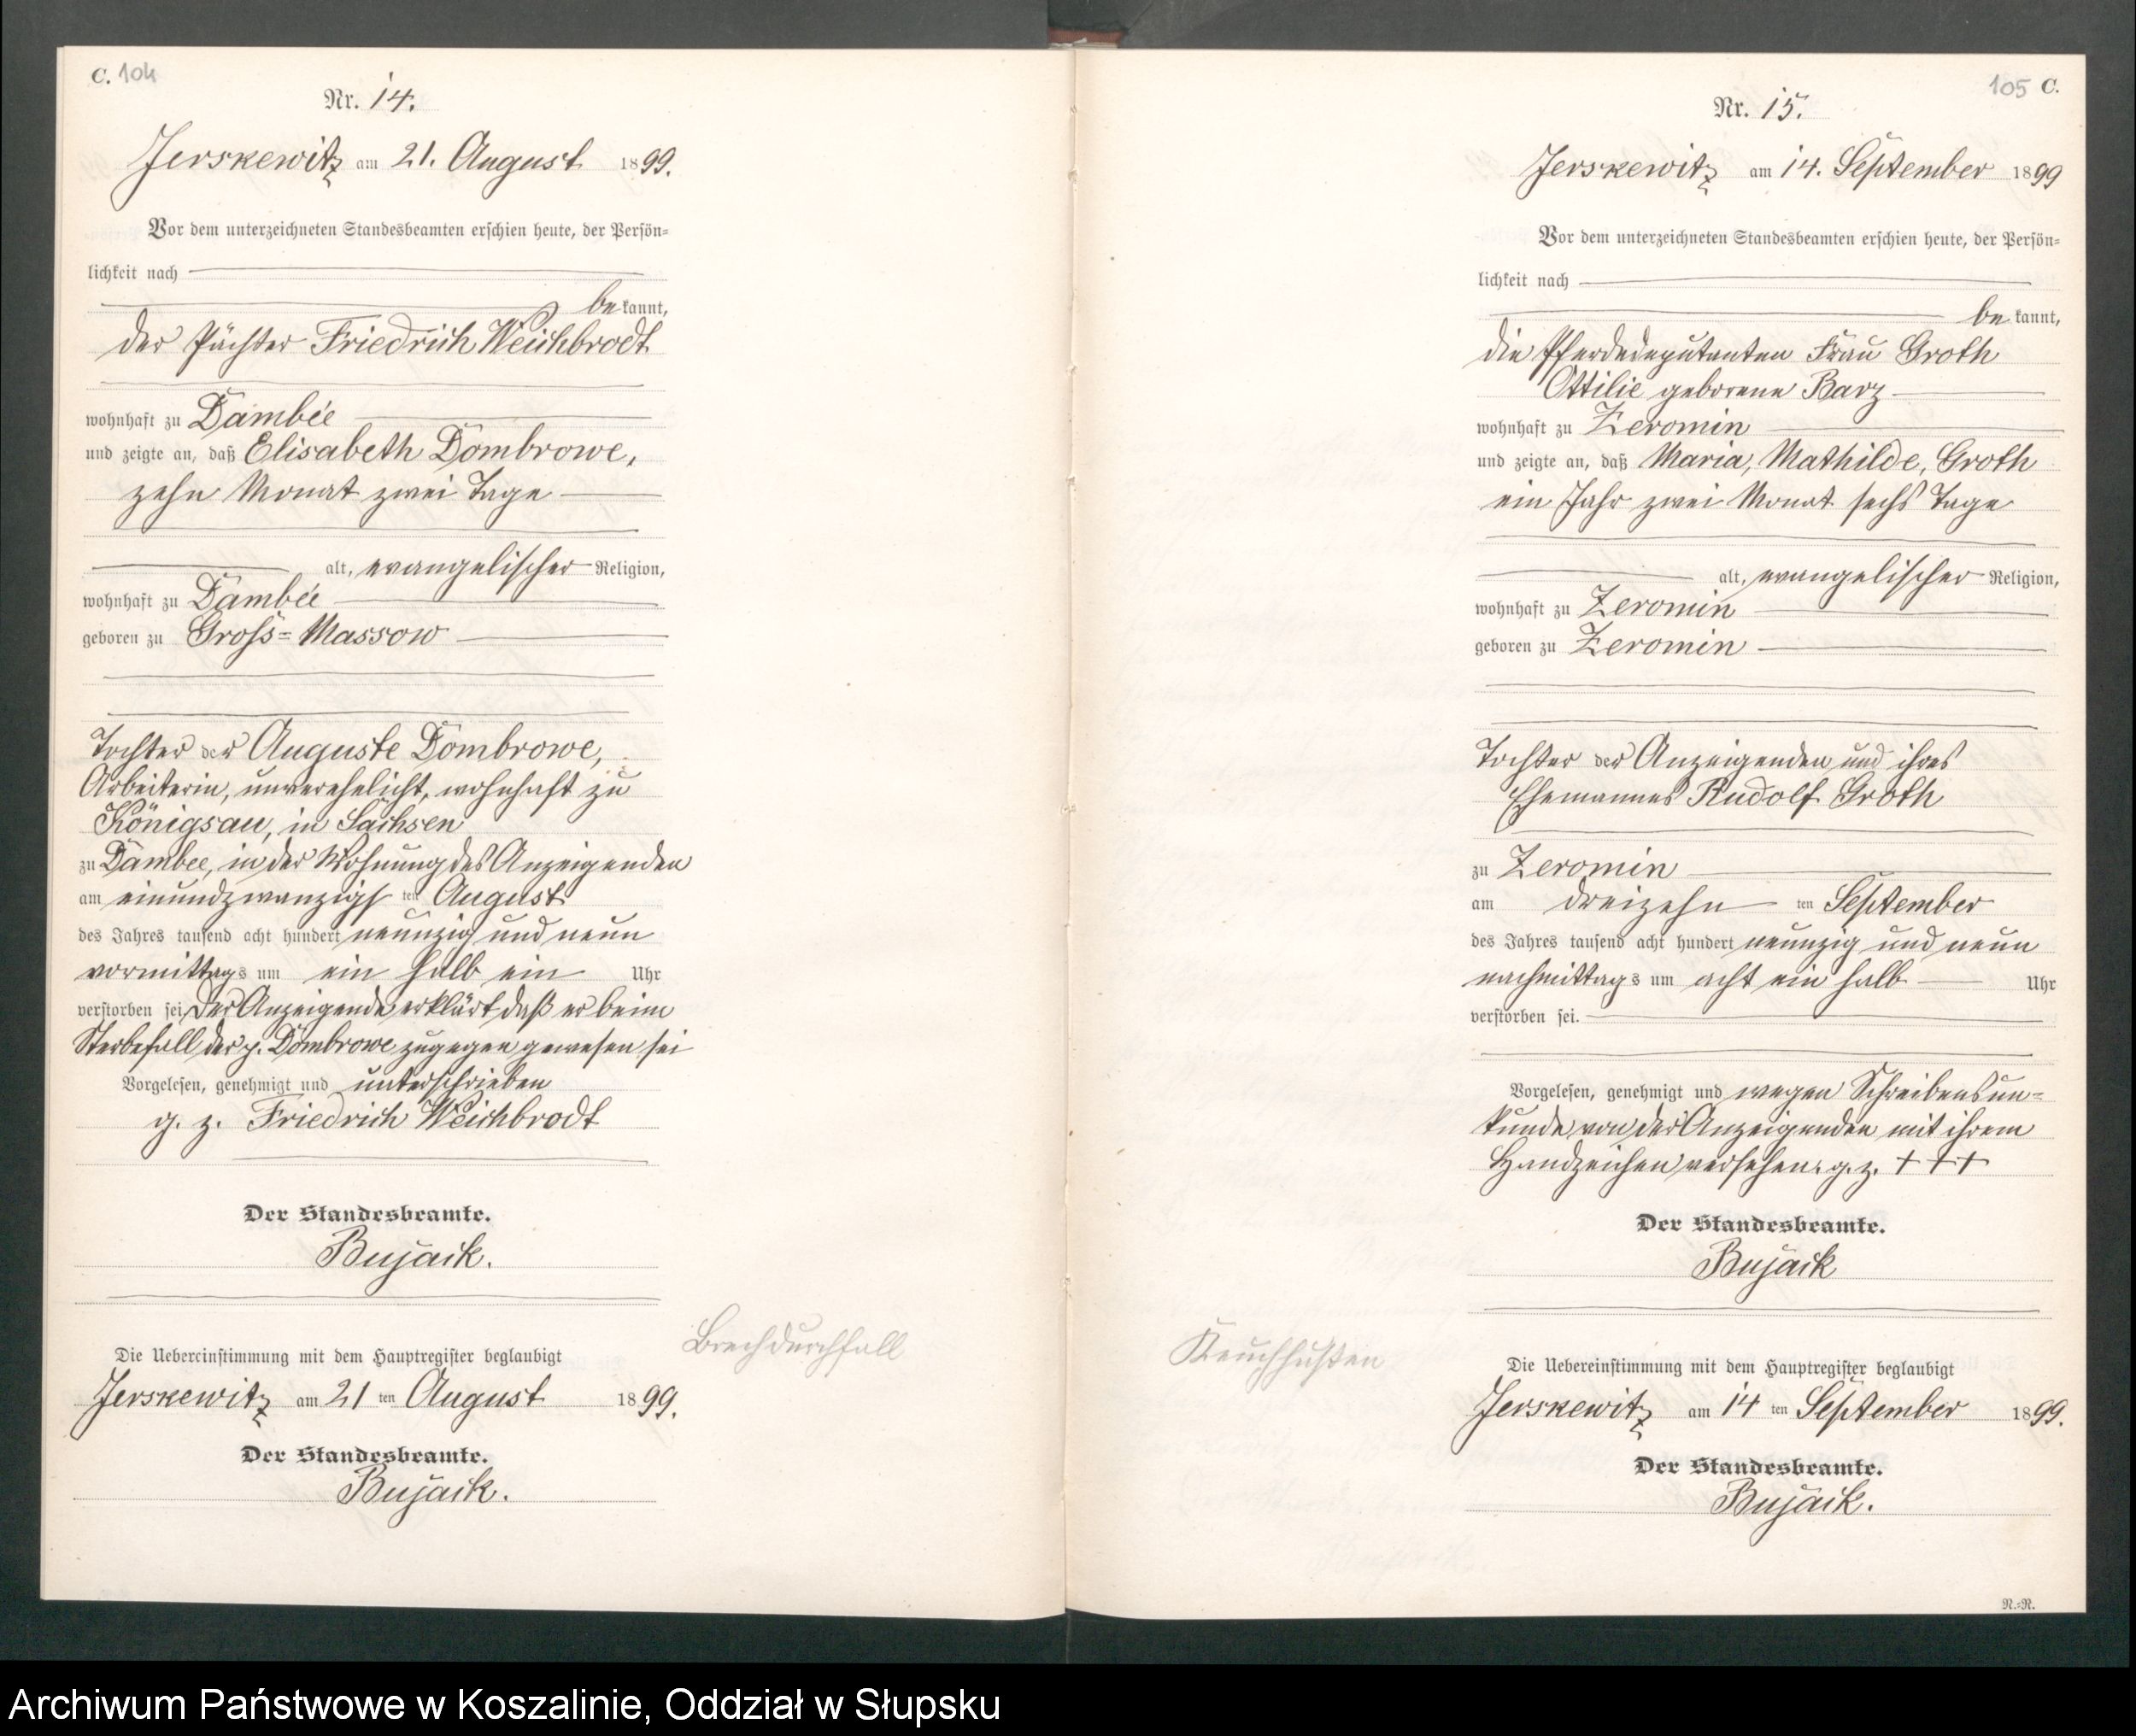 C. 104
Nr. 14.
Jerskewitz am 21. August 1899.
Vor dem unterzeichneten Standesbeamten erschien heute, der Persön-
lichkeit nach
bekannt,
der Pächter Friedrich Weichbrodt
wohnhaft zu Dambée
und zeigte an, daß Elisabeth Dombrowe,
zehn Monat zwei Tage
alt, evangelischer Religion,
wohnhaft zu Dambée
geboren zu Gross-Massow
Tochter der Auguste Dombrowe,
Arbeiterin, unverehelicht, wohnhaft zu
Königsau, in Sachsen
zu Dambee, in der Wohnung des Anzeigenden
am einundzwanzigsten August
des Jahres tausend acht hundert neunzig und neun
vormittags um ein halb ein Uhr
verstorben sei, der Anzeigende erklärt daß er beim
Sterbefall der p. Dombrowe zugegen gewesen sei
Vorgelesen, genehmigt und unterschrieben
g. z. Friedrich Weichbrodt
Der Standesbeamte.
Bujack.
Die Uebereinstimmung mit dem Hauptregister beglaubigt
Jerskewitz am 21 ten August 1899.
Der Standesbeamte.
Bujack.
Brechdurchfall
105 C.
Nr. 15.
Jerskewitz am 14. September 1899
Vor dem unterzeichneten Standesbeamten erschien heute, der Persön-
lichkeit nach
bekannt,
die Pferdedeputanten Frau Groth
Ottilie geborene Barz
wohnhaft zu Zeromin
und zeigte an, daß Maria, Mathilde, Groth
ein Jahr zwei Monat sechs Tage
alt, evangelischer Religion,
wohnhaft zu Zeromin
geboren zu Zeromin
Tochter der Anzeigenden und ihres
Ehemannes Rudolf Groth
zu Zeromin
am dreizehn ten September
des Jahres tausend acht hundert neunzig und neun
nachmittags um acht ein halb Uhr
verstorben sei.
Vorgelesen, genehmigt und wegen Schreibensun-
kunde von der Anzeigenden mit ihrem
Handzeichen versehen. g. z. + + +
Der Standesbeamte.
Bujack
Keuchhusten
Die Uebereinstimmung mit dem Hauptregister beglaubigt
Jerskewitz am 14 ten September 1899.
Der Standesbeamte.
Bujack.
N.-N.
Archiwum Państwowe w Koszalinie, Oddział w Słupsku